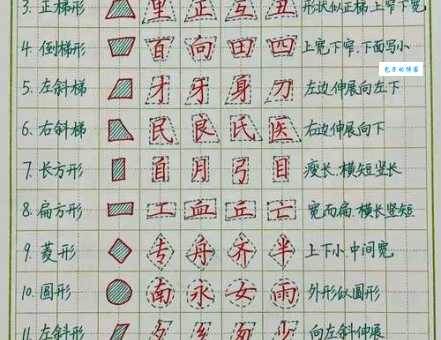 3. 正梯形 里 正 互 丑 形状似正梯.上窄下宽
4. 倒梯形 百 向 田 四 上宽下窄.下面写小
5. 左斜梯 才 牙 身 刀 左边伸展向左下
6. 右斜梯 民 良 氏 医 右边伸展向下
7. 长方形 自 月 弓 目 瘦长.横短竖长
8. 扁方形 工 血 丘 亡 宽而扁.横长竖短
9. 菱形 专 舟 齐 半 上下小中间宽
10. 圆形 南 永 女 雨 外形似圆形
11. 左斜形 夕 乡 勿 少 向左斜伸展